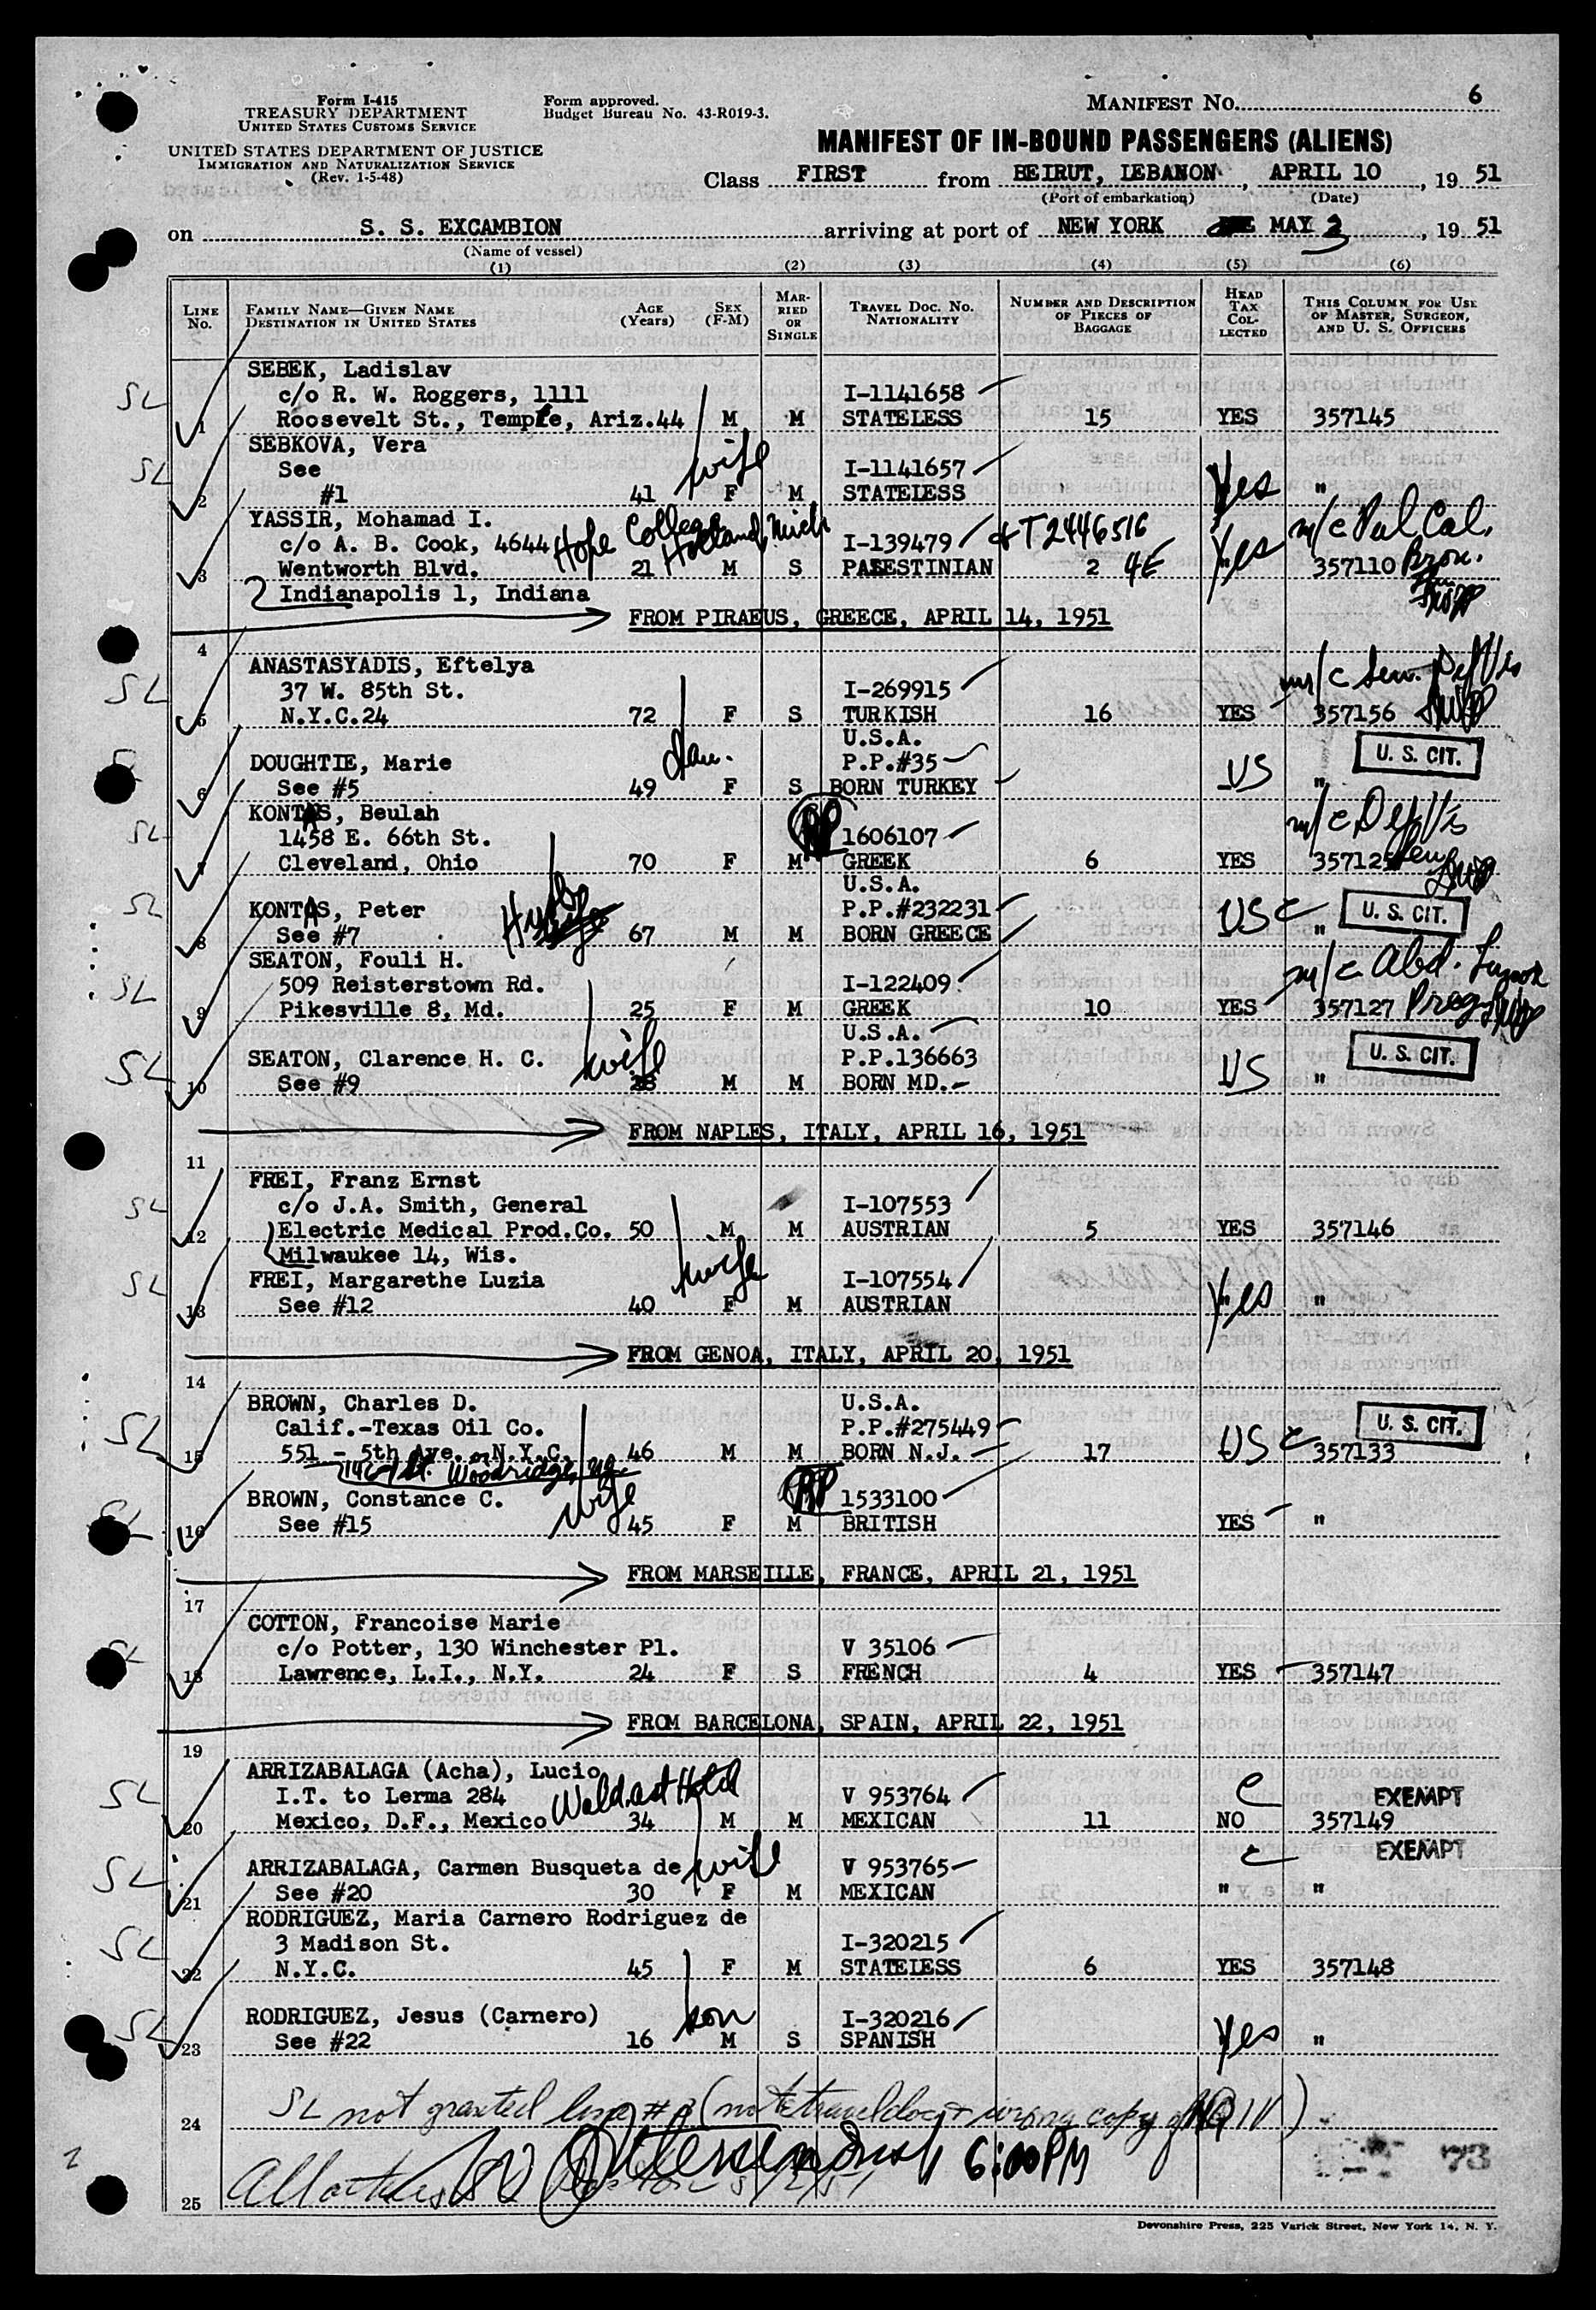 Form I-415
TREASURY DEPARTMENT
UNITED STATES CUSTOMS SERVICE
UNITED STATES DEPARTMENT OF JUSTICE
IMMIGRATION AND NATURALIZATION SERVICE
(Rev. 1-5-48)
Form approved.
Budget Bureau No. 43-R019-3.
MANIFEST NO. 6
MANIFEST OF IN-BOUND PASSENGERS (ALIENS)
Class FIRST from BEIRUT, LEBANON, APRIL 10, 19 51
(Port of embarkation) (Date)
on S. S. EXCAMBION arriving at port of NEW YORK MAY 3, 19 51
(Name of vessel)
(1) (2) (3) (4) (5) (6)
LINE No. FAMILY NAME—GIVEN NAME DESTINATION IN UNITED STATES AGE (Years) SEX (F-M) MARRIED OR SINGLE TRAVEL DOC. NO. NATIONALITY NUMBER AND DESCRIPTION OF PIECES OF BAGGAGE HEAD TAX COLLECTED THIS COLUMN FOR USE OF MASTER, SURGEON, AND U. S. OFFICERS
SEBEK, Ladislav
SL c/o R. W. Roggers, 1111 I-1141658
1 Roosevelt St., Tempe, Ariz. 44 M M STATELESS 15 YES 357145
SEBKOVA, Vera wife
SL See I-1141657
2 #1 41 F M STATELESS Yes "
YASSIR, Mohamad I. Hope College Holland, Mich m/c Pul Cal.
c/o A. B. Cook, 4644 I-139479 & T2446516
3 Wentworth Blvd. 21 M S PALESTINIAN 2 4E Yes 357110
Indianapolis 1, Indiana
FROM PIRAEUS, GREECE, APRIL 14, 1951
4
ANASTASYADIS, Eftelya m/c Sen. Def Vis
SL 37 W. 85th St. I-269915
5 N.Y.C.24 72 F S TURKISH 16 YES 357156
U.S.A.
DOUGHTIE, Marie dau. P.P.#35 US U. S. CIT.
6 See #5 49 F S BORN TURKEY "
KONTAS, Beulah m/c Def Vis
SL 1458 E. 66th St. RP 1606107
7 Cleveland, Ohio 70 F M GREEK 6 YES 357125
U.S.A.
SL KONTAS, Peter Husb P.P.#232231 USC U. S. CIT.
8 See #7 67 M M BORN GREECE "
SEATON, Fouli H. m/c Abd.
SL 509 Reisterstown Rd. I-122409
9 Pikesville 8, Md. 25 F M GREEK 10 YES 357127 Preg
U.S.A.
SL SEATON, Clarence H. C. wife P.P.136663 US U. S. CIT.
10 See #9 28 M M BORN MD. "
FROM NAPLES, ITALY, APRIL 16, 1951
11
FREI, Franz Ernst
SL c/o J.A. Smith, General I-107553
12 Electric Medical Prod.Co. 50 M M AUSTRIAN 5 YES 357146
Milwaukee 14, Wis. wife
SL FREI, Margarethe Luzia I-107554
13 See #12 40 F M AUSTRIAN Yes "
FROM GENOA, ITALY, APRIL 20, 1951
14
BROWN, Charles D. U.S.A.
SL Calif.-Texas Oil Co. P.P.#275449 U. S. CIT.
15 551 - 5th Ave. N.Y.C. 46 M M BORN N.J. 17 USC 357133
BROWN, Constance C. wife RP 1533100
16 See #15 45 F M BRITISH YES "
FROM MARSEILLE, FRANCE, APRIL 21, 1951
17
COTTON, Francoise Marie
SL c/o Potter, 130 Winchester Pl. V 35106
18 Lawrence, L.I., N.Y. 24 F S FRENCH 4 YES 357147
FROM BARCELONA, SPAIN, APRIL 22, 1951
19
ARRIZABALAGA (Acha), Lucio
SL I.T. to Lerma 284 V 953764 C EXEMPT
20 Mexico, D.F., Mexico 34 M M MEXICAN 11 NO 357149
SL ARRIZABALAGA, Carmen Busqueta de wife V 953765 C EXEMPT
21 See #20 30 F M MEXICAN " "
RODRIGUEZ, Maria Carnero Rodriguez de
SL 3 Madison St. I-320215
22 N.Y.C. 45 F M STATELESS 6 YES 357148
SL RODRIGUEZ, Jesus (Carnero) son I-320216
23 See #22 16 M S SPANISH Yes "
24 SL not granted line #3 (note travel doc + wrong copy of
25 All others 6:00PM
Devonshire Press, 225 Varick Street, New York 14, N. Y.